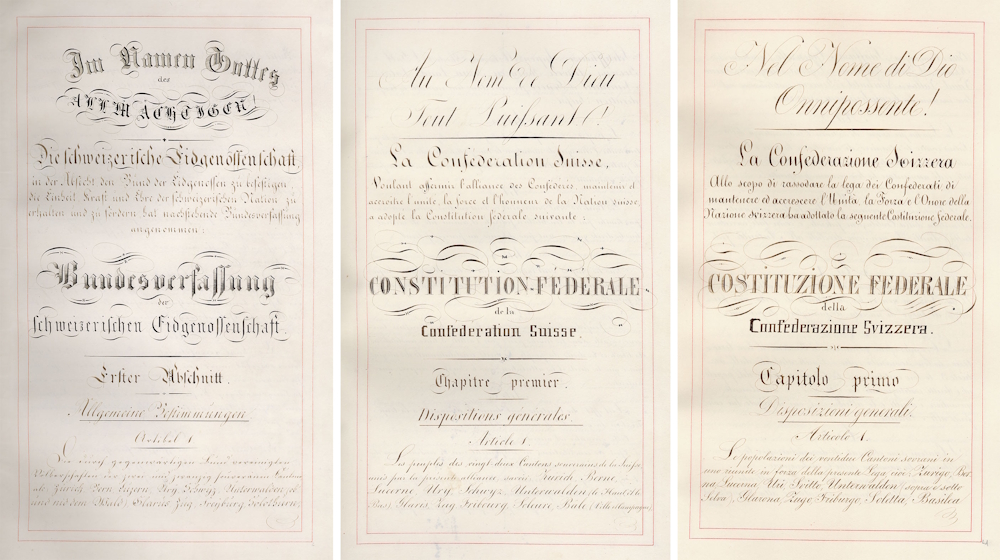 Im Namen Gottes
des
ALLMÄCHTIGEN!
Die schweizerische Eidgenossenschaft
in der Absicht den Bund der Eidgenossen zu befestigen,
die Einheit Kraft und Ehre der schweizerischen Nation zu
erhalten und zu fördern hat nachstehende Bundesverfassung
angenommen:
Bundesverfassung
der
schweizerischen Eidgenossenschaft.
Erster Abschnitt.
Allgemeine Bestimmungen
Artikel 1
Die durch gegenwärtigen Bund vereinigten
Völkerschaften der zwei und zwanzig souveränen Kantone
als: Zürich Bern Luzern, Ury, Schwyz Unterwalden, ob
und nid dem Wald, Glarus Zug Freyburg Solothurn,
Au Nom de Dieu
Tout Puissant!
La Confédération Suisse,
Voulant affermir l'alliance des Confédérés, maintenir et
accroître l'unité, la force et l'honneur de la Nation suisse,
a adopté la Constitution fédérale suivante:
CONSTITUTION-FÉDÉRALE
de la
Confédération Suisse.
Chapitre premier.
Dispositions générales.
Article 1.
Les peuples des vingt deux Cantons souverains de la Suisse
unis par la présente alliance savoir: Zurich Berne,
Lucerne Ury, Schwyz, Unterwalden (le Haut et le
Bas) Glaris, Zug Fribourg Soleure, Bâle (Ville et campagne)
Nel Nome di Dio
Onnipossente!
La Confederazione Svizzera
Allo scopo di rassodare la lega dei Confederati di
mantenere ed accrescere l'Unità, la Forza e l'Onore della
Nazione svizzera ha adottato la seguente Costituzione federale.
COSTITUZIONE FEDERALE
della
Confederazione Svizzera.
Capitolo primo
Disposizioni generali.
Articolo 1.
Le popolazioni dei ventidue Cantoni sovrani in
uno riunite in forza della presente Lega cioè: Zurigo, Ber
na Lucerna, Uri, Svitto, Unterwalden (sopra e sotto
Selva), Glarona, Zugo Friborgo, Soletta, Basilea